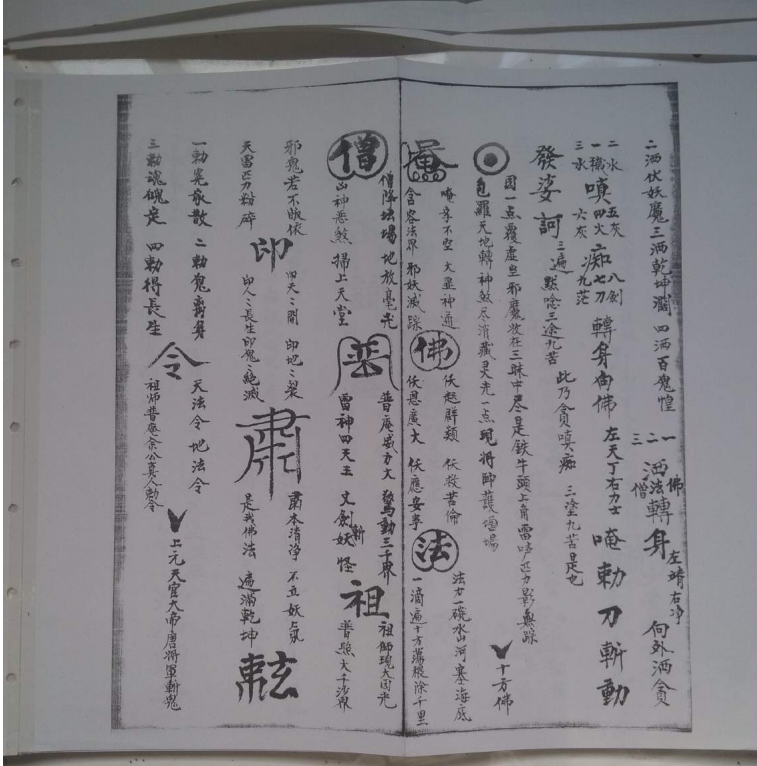 二洒伏妖魔三洒乾坤濶四洒百鬼惶
一二三
洒佛法僧轉身
左靖右净
向外洒貪
二水五灰八劍
一職嗔四火痴七刀轉身向佛
三水六灰九茫
左天丁右力士
唵勅刀斬動
發娑訶
三遍
默唸三途九苦
此乃貪嗔痴三塗九苦是也
因一点覆虚皇邪魔收在三昧中尽是鉄牛頭上角雷吽匹力影無踪
包羅天地轉神煞尽消藏灵光一点現将帥護壇場
十方佛
唵字不空大显神通
含容法界邪妖滅踪
佛
仸超群類仸救苦倫
仸恩廣大仸應安寧
法
法力一碗水山河塞海底
一滴遍十方蕩穢除千里
僧
僧降坛場地放毫光
山神恶煞掃上天堂
普庵威力大驚動三千界
雷神四天王丈劍斬妖怪
祖
祖師現大圆光
普照大千沙界
邪鬼若不皈依
天雷匹力粉碎
印
印天天開印地地裂
印人人長生印鬼鬼絶滅
肅
肅本清净不立妖氛
是我佛法遍滿乾坤
一勅冤家散二勅鬼離身
三勅魂魄定四勅得長生
令
天法令地法令
祖師普庵余公真人勅令
上元天官大帝唐将軍斬鬼